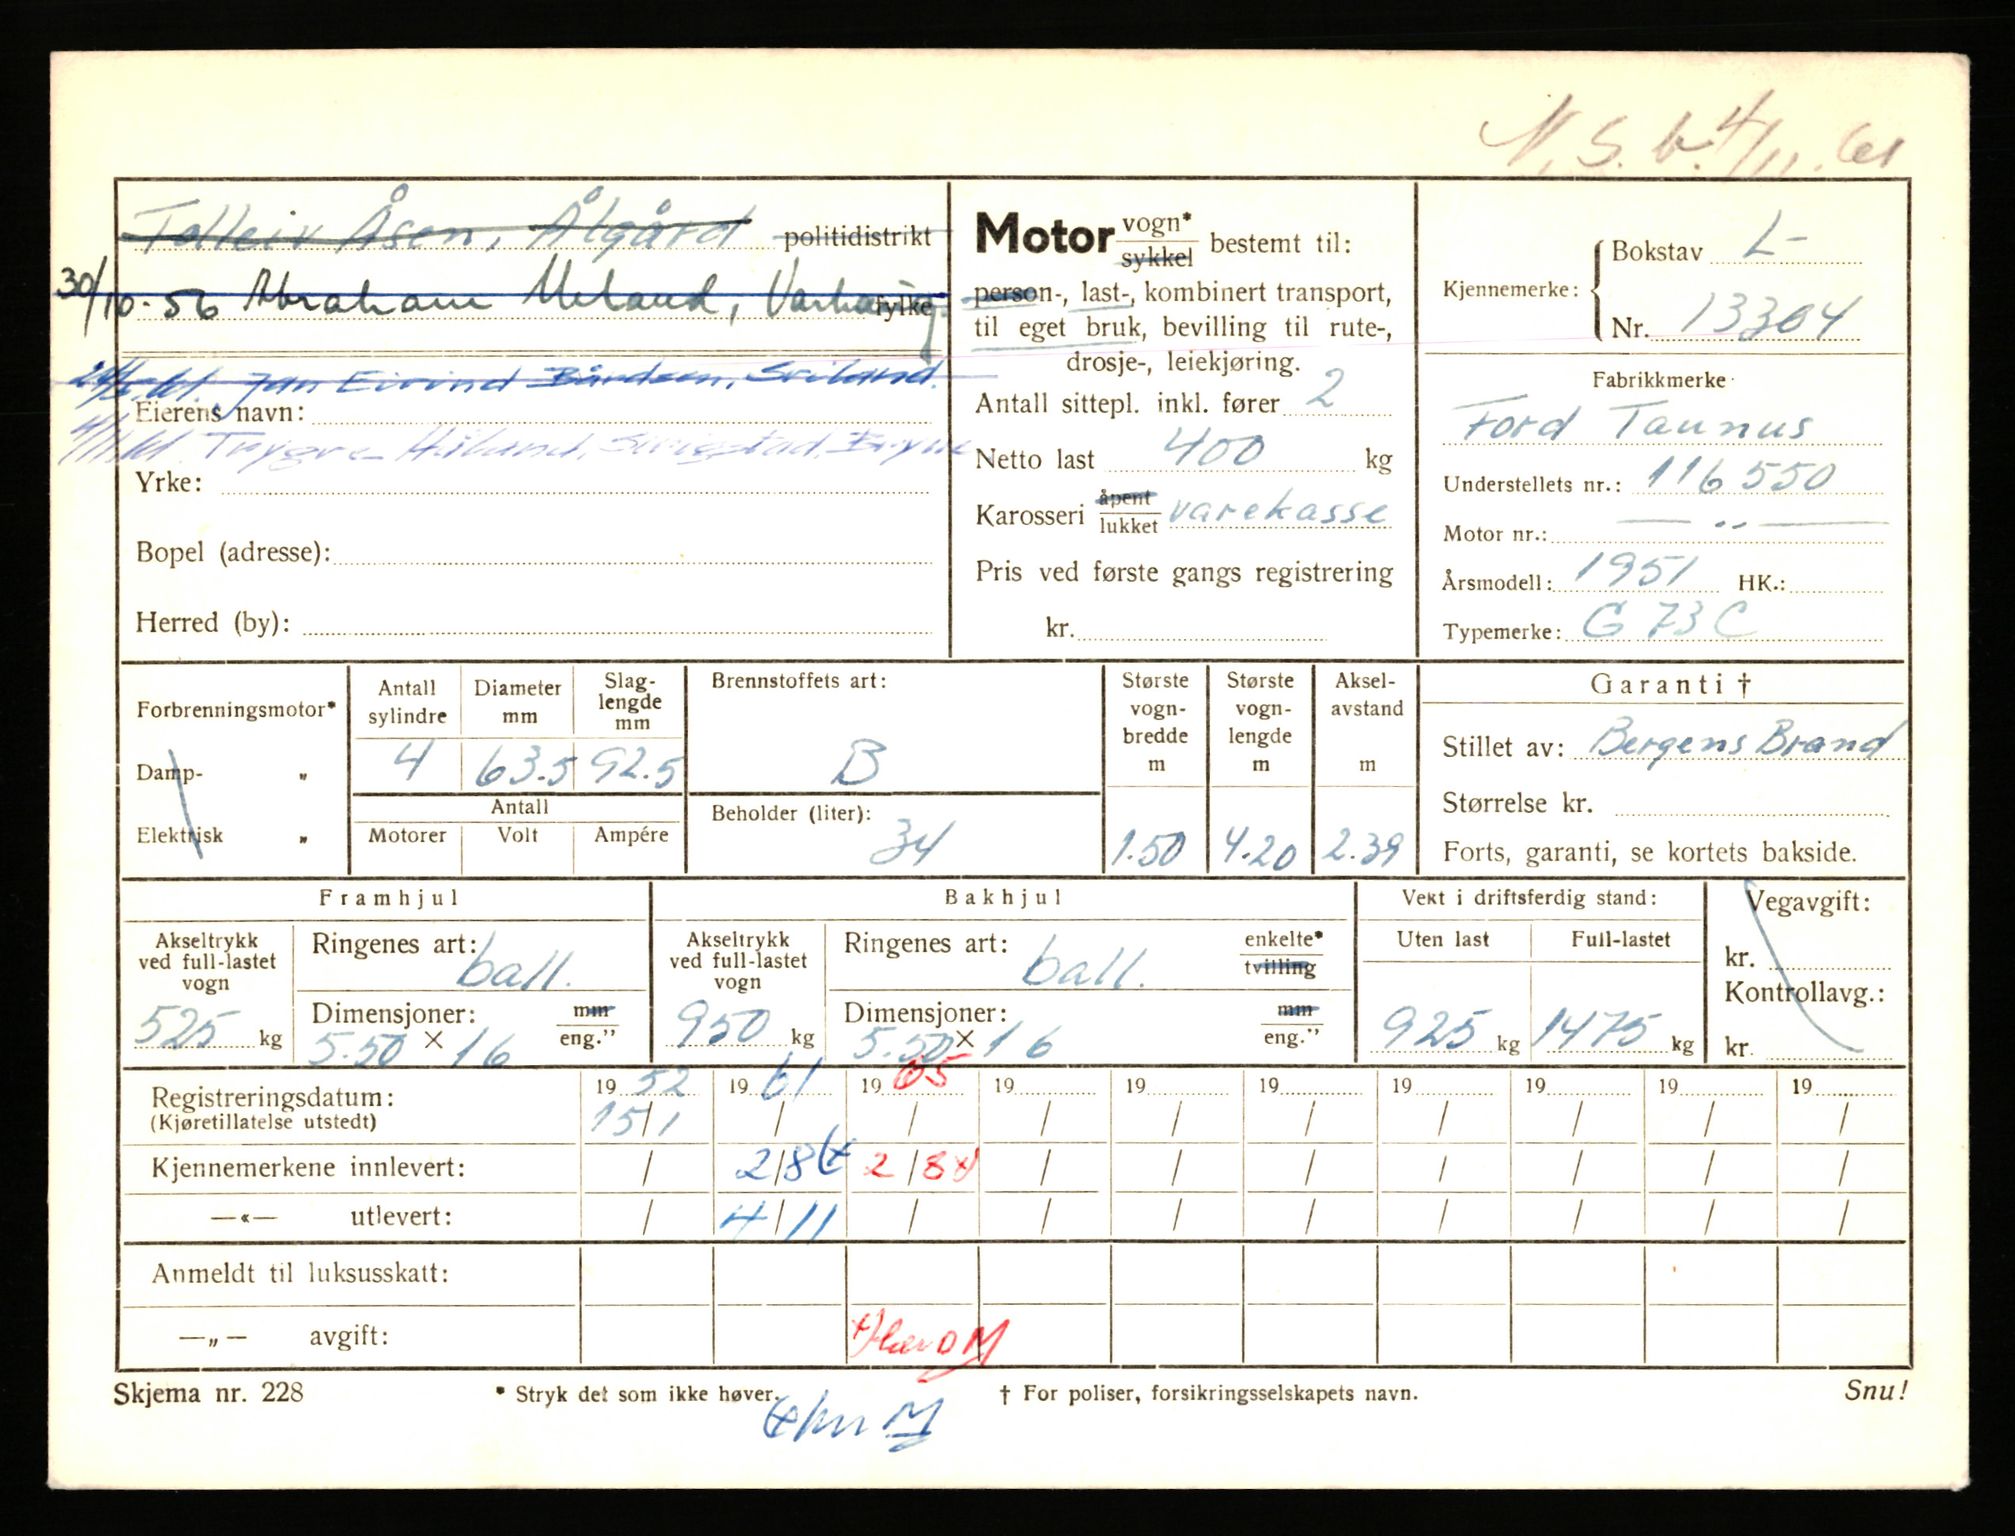 N. S. b. 4/11. 61
Tolleiv Åsen, Ålgård politidistrikt
30/10-56 Abraham Ueland, Varhaug fylke
Jan Eivind Bårdsen, Sviland.
Eierens navn:
4/11.61. Trygve Håland, Bryne
Yrke:
Bopel (adresse):
Herred (by):
Motor vogn* sykkel bestemt til:
person-, last-, kombinert transport,
til eget bruk, bevilling til rute-,
drosje-, leiekjøring.
Antall sittepl. inkl. fører 2
Netto last 400 kg
Karosseri åpent lukket varekasse
Pris ved første gangs registrering
kr.
Kjennemerke: Bokstav L-
Nr. 13304
Fabrikkmerke
Ford Taunus
Understellets nr.: 116550
Motor nr.: — „ —
Årsmodell: 1951 HK.:
Typemerke: G 73 C
Forbrenningsmotor*
Damp- „
Elektrisk „
Antall sylindre 4
Diameter mm 63.5
Slaglengde mm 92.5
Antall
Motorer Volt Ampére
Brennstoffets art:
B
Beholder (liter):
34
Største vognbredde m 1.50
Største vognlengde m 4.20
Akselavstand m 2.39
Garanti †
Stillet av: Bergens Brand
Størrelse kr.
Forts, garanti, se kortets bakside.
Framhjul
Akseltrykk ved full-lastet vogn 525 kg
Ringenes art: ball.
Dimensjoner: mm eng."
5.50 × 16
Bakhjul
Akseltrykk ved full-lastet vogn 950 kg
Ringenes art: ball. enkelte* tvilling
Dimensjoner: mm eng."
5.50 × 16
Vekt i driftsferdig stand:
Uten last 925 kg
Full-lastet 1475 kg
Vegavgift:
kr.
Kontrollavg.:
kr.
Registreringsdatum: 1952 1961 1965 19 19 19 19 19 19 19
(Kjøretillatelse utstedt) 15/1 / / / / / / / / /
Kjennemerkene innlevert: / 2/8 2/8 x) / / / / / / /
—«— utlevert: / 4/11 / / / / / / / /
Anmeldt til luksusskatt:
—„— avgift:
Skjema nr. 228 * Stryk det som ikke høver. † For poliser, forsikringsselskapets navn. Snu!